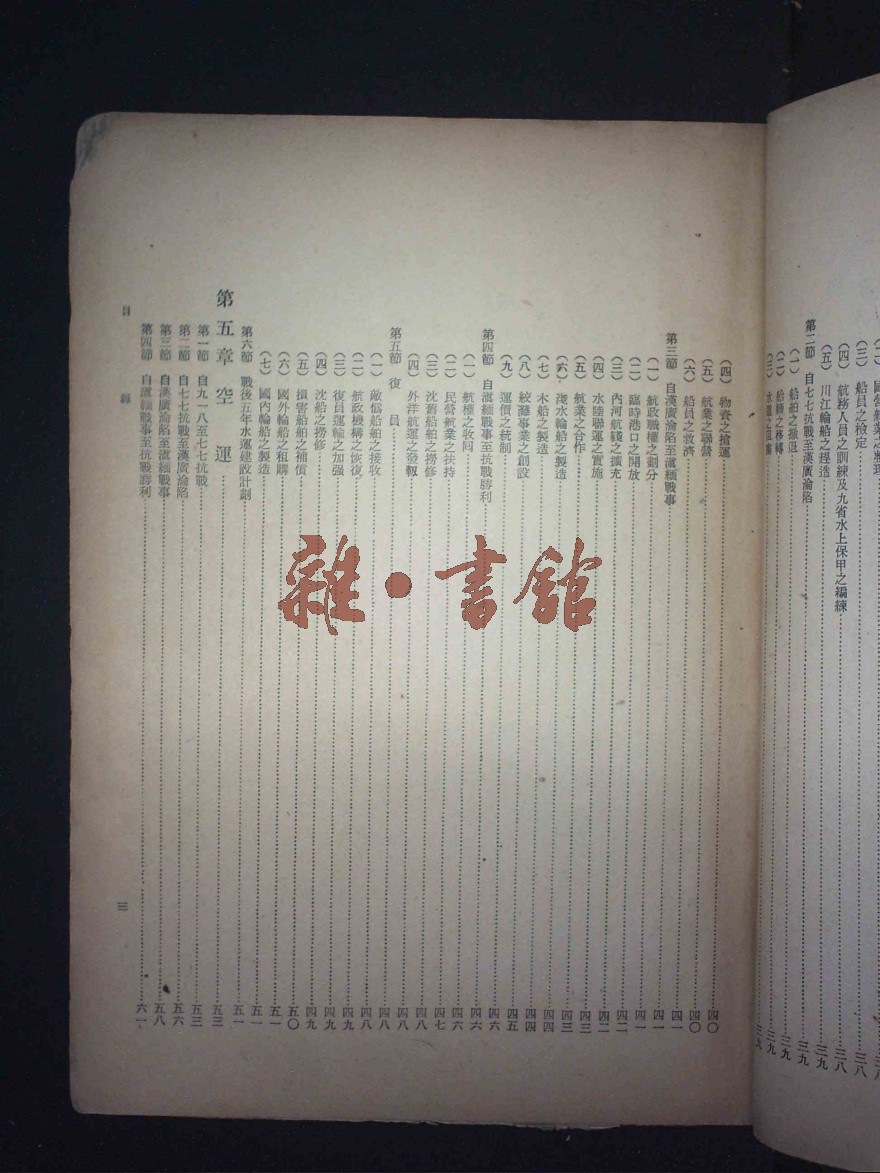 國營航業之整理……三八
(三) 船員之檢定……三八
(四) 航務人員之訓練及九省水上保甲之編練……三八
(五) 川江輪船之經造……三九
第二節 自七七抗戰至漢廣淪陷……三九
(一) 船舶之撤退……三九
(二) 船籍之移轉……三九
(三) 水道之阻塞……三九
(四) 物資之搶運……四〇
(五) 航業之聯營……四〇
(六) 船員之救濟……四一
第三節 自漢廣淪陷至滇緬戰事……四一
(一) 航政職權之劃分……四一
(二) 臨時港口之開放……四二
(三) 內河航綫之擴充……四二
(四) 水陸聯運之實施……四三
(五) 航業之合作……四三
(六) 淺水輪船之製造……四四
(七) 木船之製造……四四
(八) 絞灘事業之創設……四五
(九) 運價之統制……四六
第四節 自滇緬戰事至抗戰勝利……四六
(一) 航權之收回……四六
(二) 民營航業之扶持……四七
(三) 沈舊船舶之撈修……四八
(四) 外洋航運之發軔……四八
第五節 復 員……四八
(一) 敵僞船舶之接收……四八
(二) 航政機構之恢復……四九
(三) 復員運輸之加强……四九
(四) 沈船之撈修……四九
(五) 損害船舶之補償……五〇
(六) 國外輪船之租購……五一
(七) 國內輪船之製造……五一
第六節 戰後五年水運建設計劃……五一
第五章 空 運……五三
第一節 自九一八至七七抗戰……五三
第二節 自七七抗戰至漢廣淪陷……五六
第三節 自漢廣淪陷至滇緬戰事……五八
第四節 自滇緬戰事至抗戰勝利……六一
目 錄
三
雜·書館